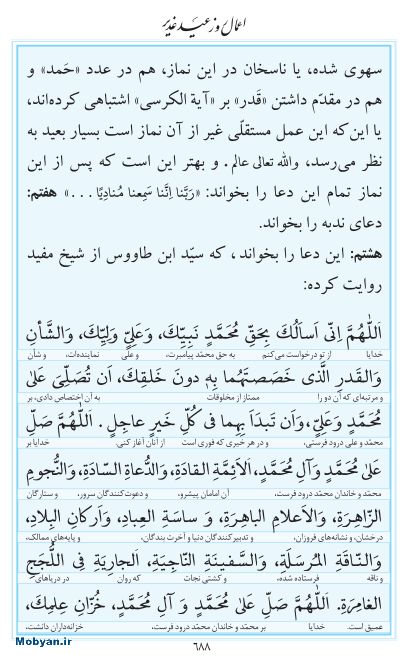 اعمال روز عید غدیر
سهوی شده، یا ناسخان در این نماز، هم در عدد «حَمد» و
هم در مقدّم داشتن «قَدر» بر «آیة الکرسی» اشتباهی کرده‌اند،
یا این‌که این عمل مستقلّی غیر از آن نماز است بسیار بعید به
نظر می‌رسد، والله تعالی عالم. و بهتر این است که پس از این
نماز تمام این دعا را بخواند: «رَبَّنا اِنَّنا سَمِعنا مُنادِیًا . . .» هفتم:
دعای ندبه را بخواند.
هشتم: این دعا را بخواند، که سیّد ابن طاووس از شیخ مفید
روایت کرده:
اَللّٰهُمَّ اِنّی اَسأَلُکَ بِحَقِّ مُحَمَّدٍ نَبِیِّکَ، وَعَلِیٍّ وَلِیِّکَ، وَالشَّأنِ
خدایا از تو درخواست می‌کنم به حق محمّد پیامبرت، و علی نماینده‌ات، و شأن
وَالقَدرِ الَّذی خَصَصتَهُما بِهِ دونَ خَلقِکَ، اَن تُصَلِّیَ عَلیٰ
و مرتبه‌ای که آن دو را ممتاز از مخلوقات به آن اختصاص دادی، بر
مُحَمَّدٍ وَعَلِیٍّ، وَاَن تَبدَاَ بِهِما فی کُلِّ خَیرٍ عاجِلٍ. اَللّٰهُمَّ صَلِّ
محمّد و علی درود فرستی، و در هر خیری که فوری است از آنان آغاز کنی. خدایا بر
عَلیٰ مُحَمَّدٍ وَآلِ مُحَمَّدٍ، اَلاَئِمَّةِ القادَةِ، وَالدُّعاةِ السّادَةِ، وَالنُّجومِ
محمّد و خاندان محمّد درود فرست، آن امامان پیشرو، و دعوت کنندگان سرور، و ستارگان
الزّاهِرَةِ، وَالاَعلامِ الباهِرَةِ، وَ ساسَةِ العِبادِ، وَاَرکانِ البِلادِ،
درخشان، و نشانه‌های فروزان، و تدبیرکنندگان دنیا و آخرت بندگان، و پایه‌های ممالک،
وَالنّاقَةِ المُرسَلَةِ، وَالسَّفینَةِ النّاجِیَةِ، اَلجارِیَةِ فِی اللُّجَجِ
و ناقه فرستاده شده، و کشتی نجات که روان در دریاهای
الغامِرَةِ. اَللّٰهُمَّ صَلِّ عَلیٰ مُحَمَّدٍ وَ آلِ مُحَمَّدٍ، خُزّانِ عِلمِکَ،
عمیق است. خدایا بر محمّد و خاندان محمّد درود فرست، خزانه‌داران دانشت،
Mobyan.ir
٦٨٨